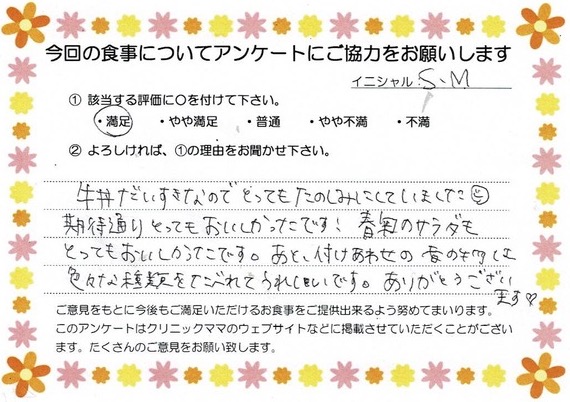 今回の食事についてアンケートにご協力をお願いします
イニシャル S.M
① 該当する評価に○を付けて下さい。
・満足 ・やや満足 ・普通 ・やや不満 ・不満
② よろしければ、①の理由をお聞かせ下さい。
牛丼だいすきなのでとってもたのしみにしていました
期待通りとってもおいしかったです! 春菊のサラダも
とってもおいしかったです。あと、付けあわせの
色々な種類をたべれてうれしいです。ありがとうござい
ます♡
ご意見をもとに今後もご満足いただけるお食事をご提供出来るよう努めてまいります。
このアンケートはクリニックママのウェブサイトなどに掲載させていただくことがござい
ます。たくさんのご意見をお願い致します。